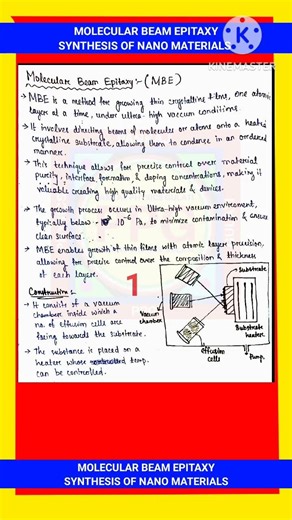 MOLECULAR BEAM EPITAXY
SYNTHESIS OF NANO MATERIALS
KINEMASTER
Molecular Beam Epitaxy:- (MBE)
→ MBE is a method for growing thin crystalline films, one atomic
layer at a time, under ultra-high vacuum conditions.
→ It involves directing beams of molecules or atoms onto a heated
crystalline substrate, allowing them to condense in an ordered
manner.
→ This technique allows for precise control over material
purity, interface formation, & doping concentrations, making it
valuable creating high quality materials & devices.
→ The growth process occurs in Ultra-high vacuum environment,
typically below 10⁻⁶ Pa, to minimize contamination & ensure
clean surface.
→ MBE enables growth of thin films with atomic layer precision,
allowing for precise control over the composition & thickness
of each layer.
Construction:-
→ It consists of a vacuum
chamber inside which a
no. of effusion cells are
facing towards the substrate.
→ The substance is placed on a
heater whose temp.
can be controlled.
1
Substrate
Vacuum
chamber
Substrate
heater
effusion
cells
Pump
MOLECULAR BEAM EPITAXY
SYNTHESIS OF NANO MATERIALS